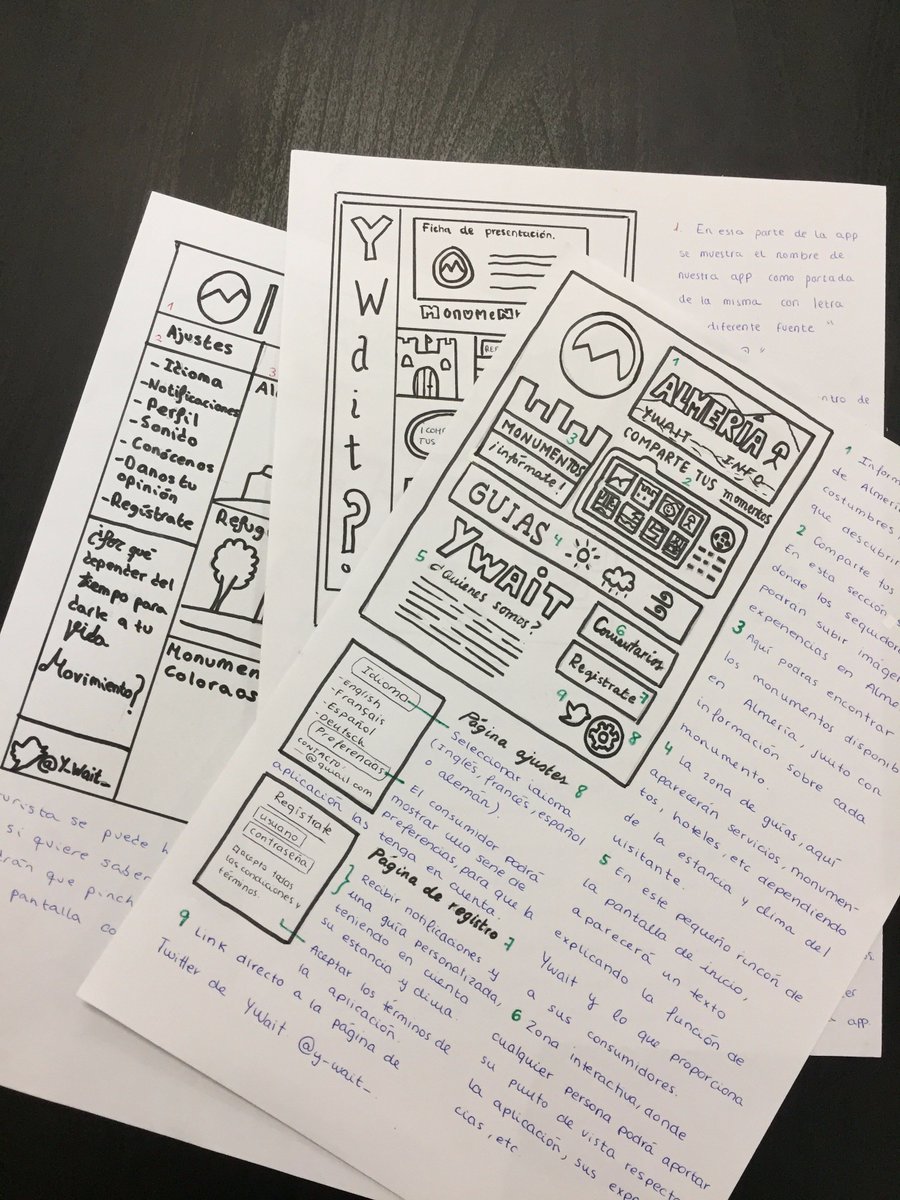 Ajustes
- Idioma
- Notificaciones
- Perfil
- Sonido
- Conócenos
- Danos tu
opinión
- Regístrate
¿Por qué
depender del
tiempo para
darle a tu
vida
Movimiento?
@Y-Wait_
Refug
Monumen
Coloraos
pantalla co
YWait?
Ficha de presentación.
MONUMEN
1. En esta parte de la app
se muestra el nombre de
nuestra app como portada
de la misma con letra
diferente fuente "
ntro de
app
1
ALMERÍA
YWAIT INFO
COMPARTE TUS momentos
2
MONUMENTOS
3
¡infórmate!
GUIAS 4
YWAIT
5 ¿Quienes somos?
Comentarios
6
Regístrate 7
9
8
Idioma
- English
- Français
- Español
- Deutsch
Preferencias
CONTACTO:
@gmail.com
Regístrate
usuario
contraseña
acepto todas
las condiciones y
términos.
Página ajustes 8
Seleccionar idioma
(Inglés, francés, español
o alemán).
El consumidor podrá
mostrar una serie de
preferencias, para que la
aplicación las tenga en cuenta.
Página de registro 7
Recibir notificaciones y
una guía personalizada,
teniendo en cuenta
su estancia y clima.
Aceptar los términos de
la aplicación.
9 Link directo a la página de
Twitter de YWait
@y-wait_
1 Inform
de Almería
costumbres
que descubrir
2 Comparte tus
En esta sección
donde los seguidor
podrán subir imágen
experiencias en Alme
3 Aquí podrás encontrar
los monumentos disponib
en Almería, junto con
información sobre cada
monumento.
4 La zona de guías, aquí
aparecerán servicios, monumen-
tos, hoteles, etc dependiendo
de la estancia y clima del
visitante.
5 En este pequeño rincón de
la pantalla de inicio,
aparecerá un texto
explicando la función de
YWait y lo que proporciona
a sus consumidores.
6 Zona interactiva, donde
cualquier persona podrá aportar
su punto de vista respecto
la aplicación, sus expe
cias, etc